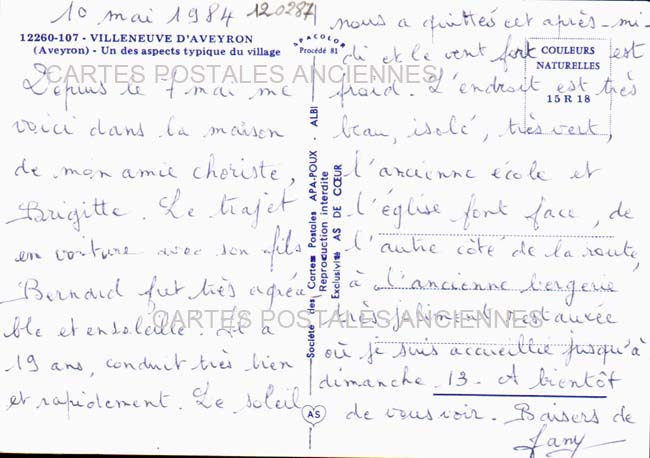 10 mai 1984
120287
12260-107 - VILLENEUVE D'AVEYRON
(Aveyron) - Un des aspects typique du village
Depuis le 7 mai me
voici dans la maison
de mon amie choriste,
Brigitte. Le trajet
en voiture avec son fils
Bernard fut très agréa
ble et ensoleillé. Il a
19 ans, conduit très bien
et rapidement. Le soleil
APACOLOR
Procédé 81
Société des Cartes Postales APA-POUX - ALBI
Reproduction interdite
Exclusivité AS DE CŒUR
AS
COULEURS
NATURELLES
15 R 18
nous a quittés cet après-mi-
di et le vent fort est
froid. L'endroit est très
beau, isolé, très vert,
l'ancienne école et
l'église font face, de
l'autre côté de la route,
à l'ancienne bergerie
très joliment restaurée
où je suis accueillie jusqu'à
dimanche 13. A bientôt
de vous voir. Baisers de
Fany
CARTES POSTALES ANCIENNES
CARTES POSTALES ANCIENNES